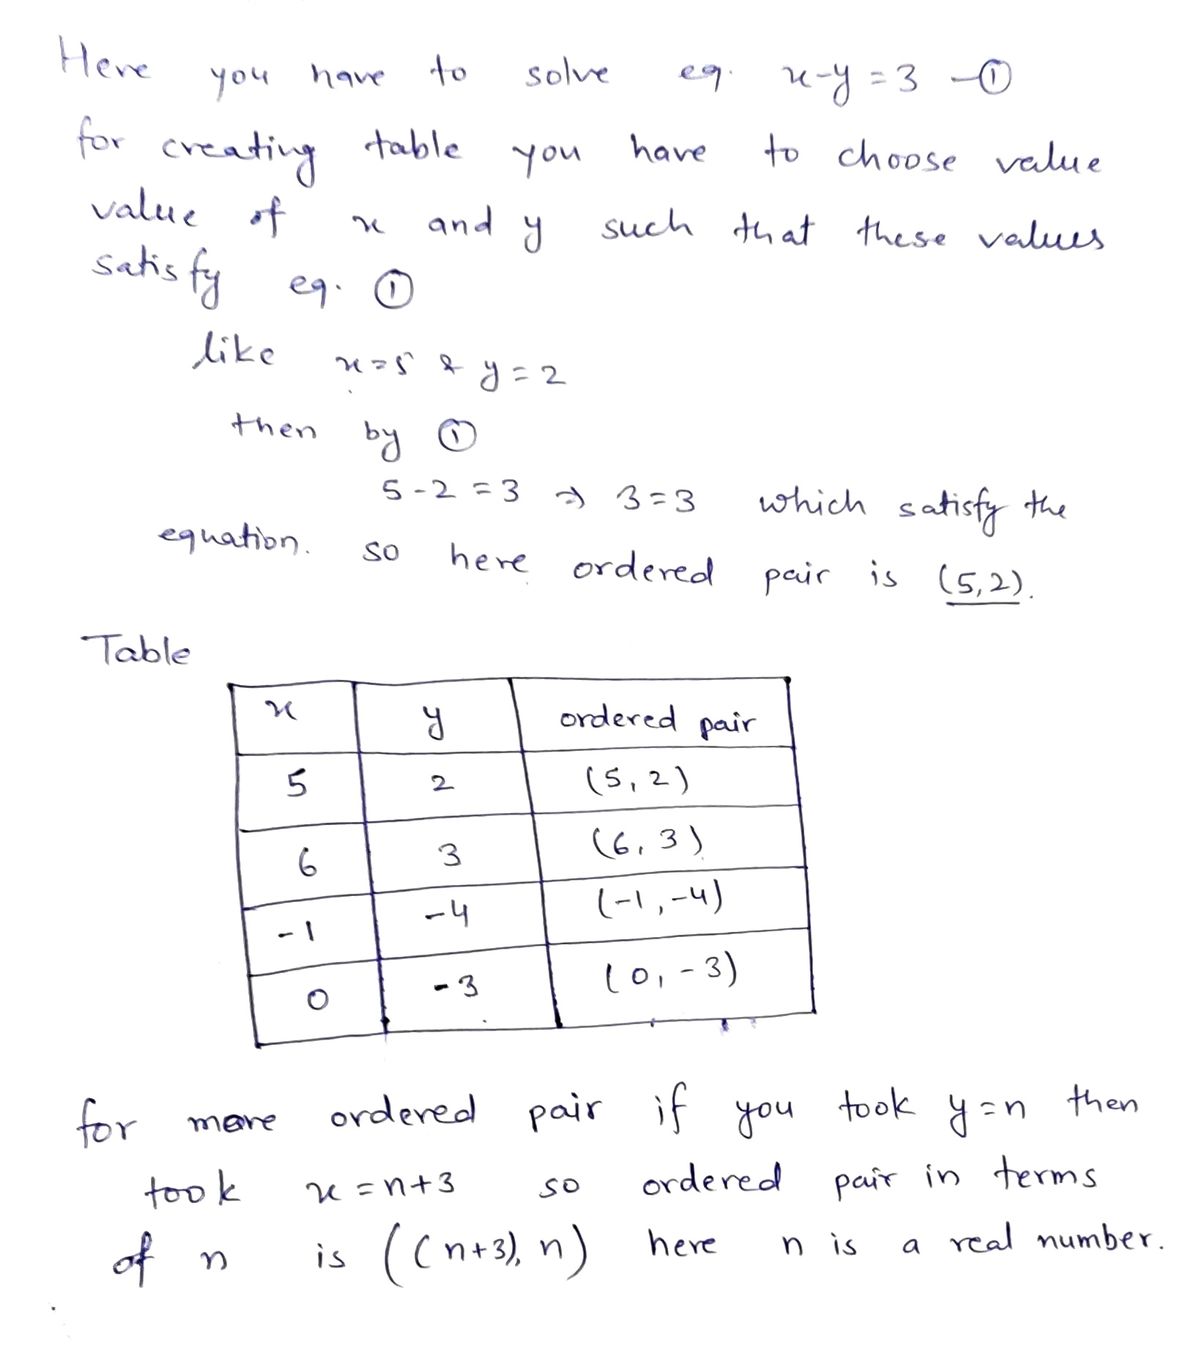 Here you have to solve eq. x-y=3 -①
for creating table you have to choose value
value of x and y such that these values
satisfy eq. ①
like x=5 & y=2
then by ①
5-2=3 ⇒ 3=3 which satisfy the
equation. so here ordered pair is (5,2).
Table
x y ordered pair
5 2 (5,2)
6 3 (6,3)
-1 -4 (-1,-4)
0 -3 (0,-3)
for more ordered pair if you took y=n then
took x=n+3 so ordered pair in terms
of n is ((n+3), n) here n is a real number.